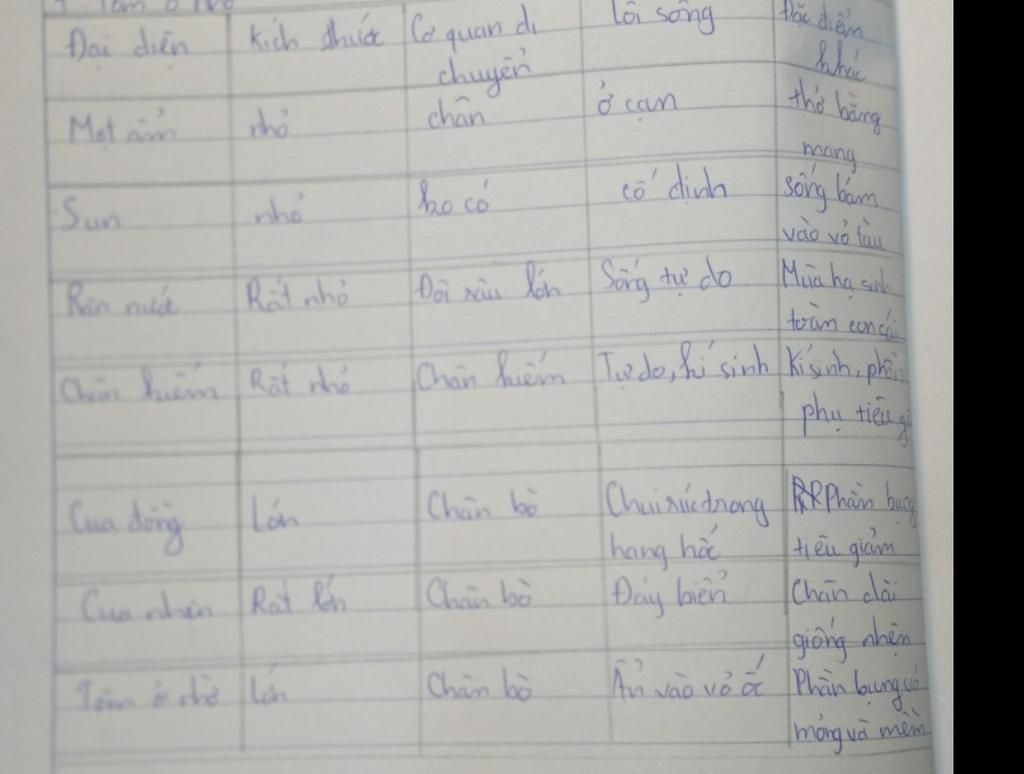 Đại diện Kích thước Cơ quan di Lối sống Đặc điểm
chuyển khác
Mọt ẩm nhỏ chân ở cạn thở bằng
mang
Sun nhỏ ko có cố định sống bám
vào vỏ tàu
Rận nước Rất nhỏ Đôi râu lớn Sống tự do Mùa hạ sinh
toàn con cái
Chân kiếm Rất nhỏ Chân kiếm Tự do, kí sinh Kí sinh, phần
phụ tiêu gi
Cua đồng Lớn Chân bò Chui rúc trong Phần bụng
hang hốc tiêu giảm
Cua nhện Rất lớn Chân bò Đáy biển Chân dài
giống nhện
Tôm ở nhờ Lớn Chân bò Ẩn vào vỏ ốc Phần bụng vỏ
mỏng và mềm